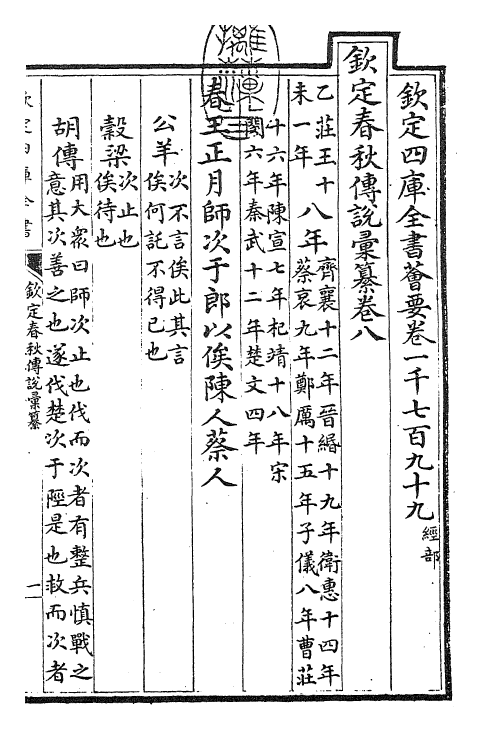 欽定四庫全書薈要卷一千七百九十九經部
欽定春秋傳說彙纂卷八
乙未莊王十一年八年齊襄十二年晉緡十九年衛惠十四年蔡哀九年鄭厲十五年子儀八年曹莊
十六年陳宣七年杞靖十八年宋閔六年秦武十二年楚文四年
春王正月師次于郎以俟陳人蔡人
公羊次不言俟此其言俟何託不得已也
穀梁次止也俟待也
胡傳用大衆曰師次止也伐而次者有整兵慎戰之意其次善之也遂伐楚次于陘是也救而次者
欽定四庫全書
欽定春秋傳說彙纂
一